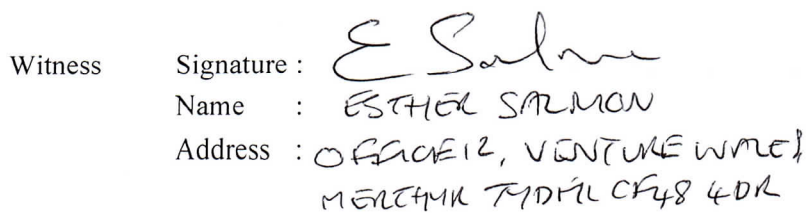 Witness Signature : E Salmon
Name : ESTHER SALMON
Address : OFFICE 12, VENTURE WALES
MERTHYR TYDFIL CF48 4DR